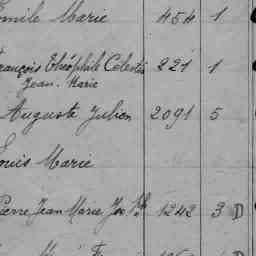 Emile Marie 454 1
François Théophile Celestin 221 1
Jean-Marie
Auguste Julien 2091 5
Louis Marie
Pierre Jean Marie Jos ph 1242 3 D